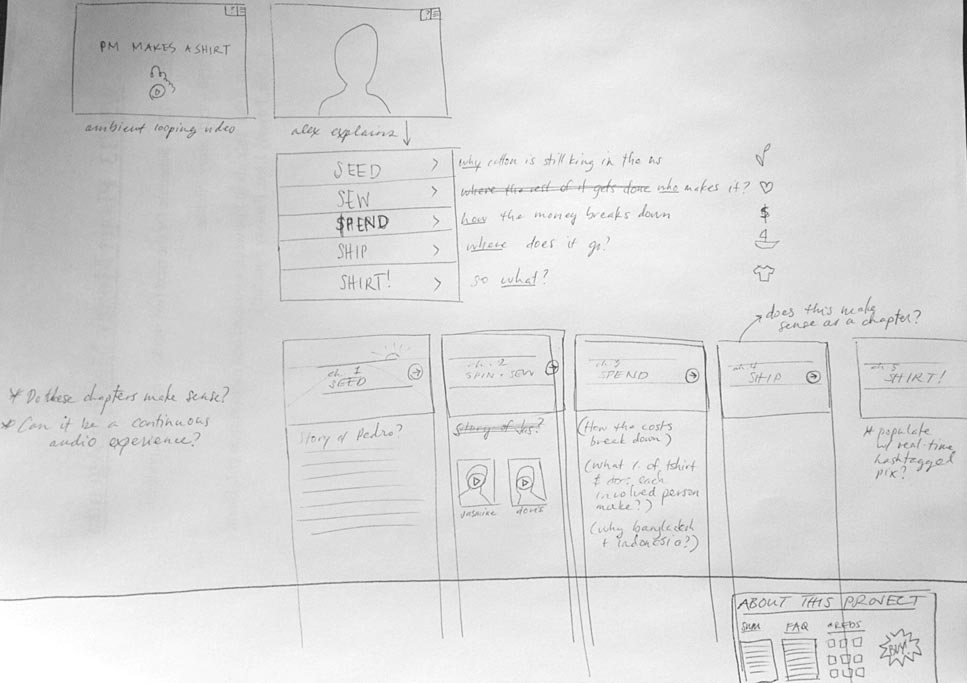 PM MAKES A SHIRT
ambient looping video
alex explains
SEED >
SEW >
$PEND >
SHIP >
SHIRT! >
why cotton is still king in the us
where the rest of it gets done who makes it?
how the money breaks down
where does it go?
so what?
$
does this make
sense as a chapter?
* Do these chapters make sense?
* Can it be a continuous
audio experience?
ch. 1
SEED
ch. 2
SPIN + SEW
ch. 3
SPEND
ch. 4
SHIP
ch. 5
SHIRT!
Story of Pedro?
Story of Jas?
Jasmine
doris
(How the costs
break down)
(What % of tshirt
each
involved person
make?)
(why bangladesh
+ indonesia?)
* populate
w/ real-time
hashtagged
pix?
ABOUT THIS PROJECT
FAQ
CREDS
BUY!